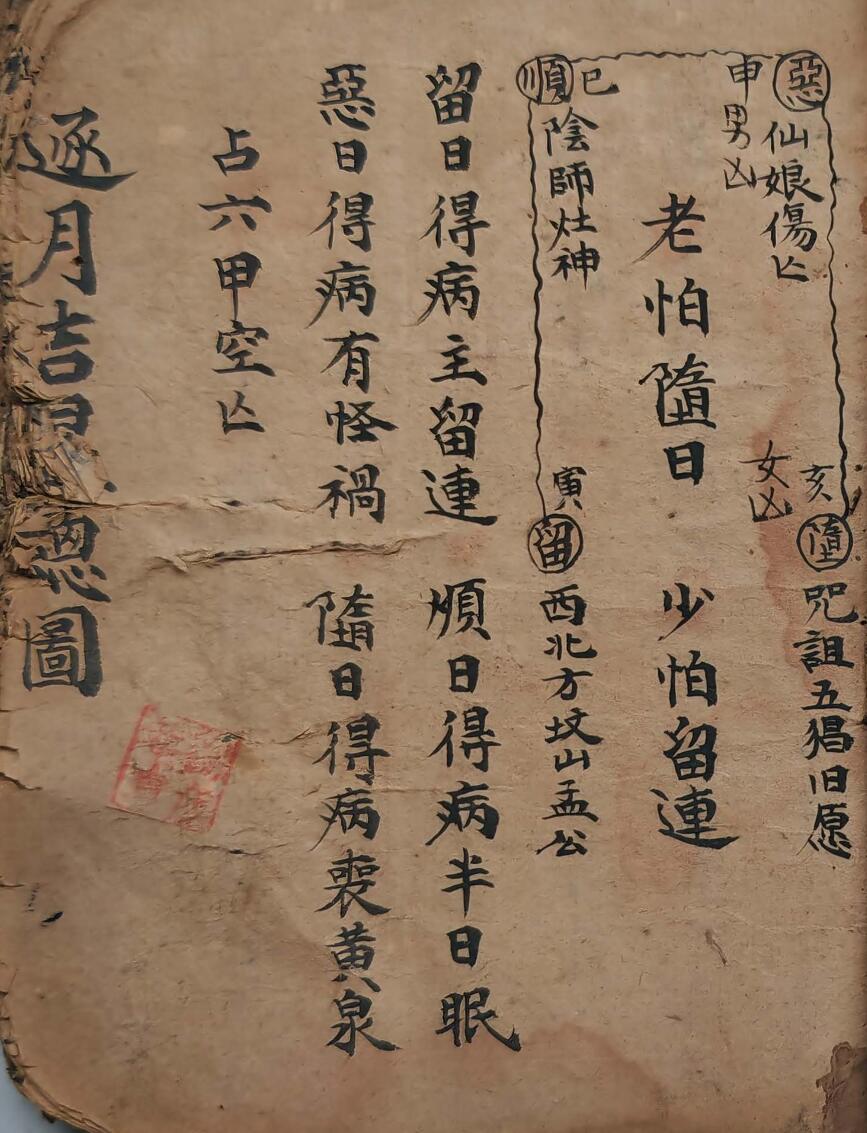 惡 仙娘傷亡
申 男凶
亥 女凶
墮 咒詛五猖旧愿
老怕隨日 少怕留連
順 巳 陰師灶神
寅 留 西北方坟山孟公
留日得病主留連 順日得病半日眠
惡日得病有怪禍 隨日得病喪黄泉
占六甲空亡
逐月吉 總圖